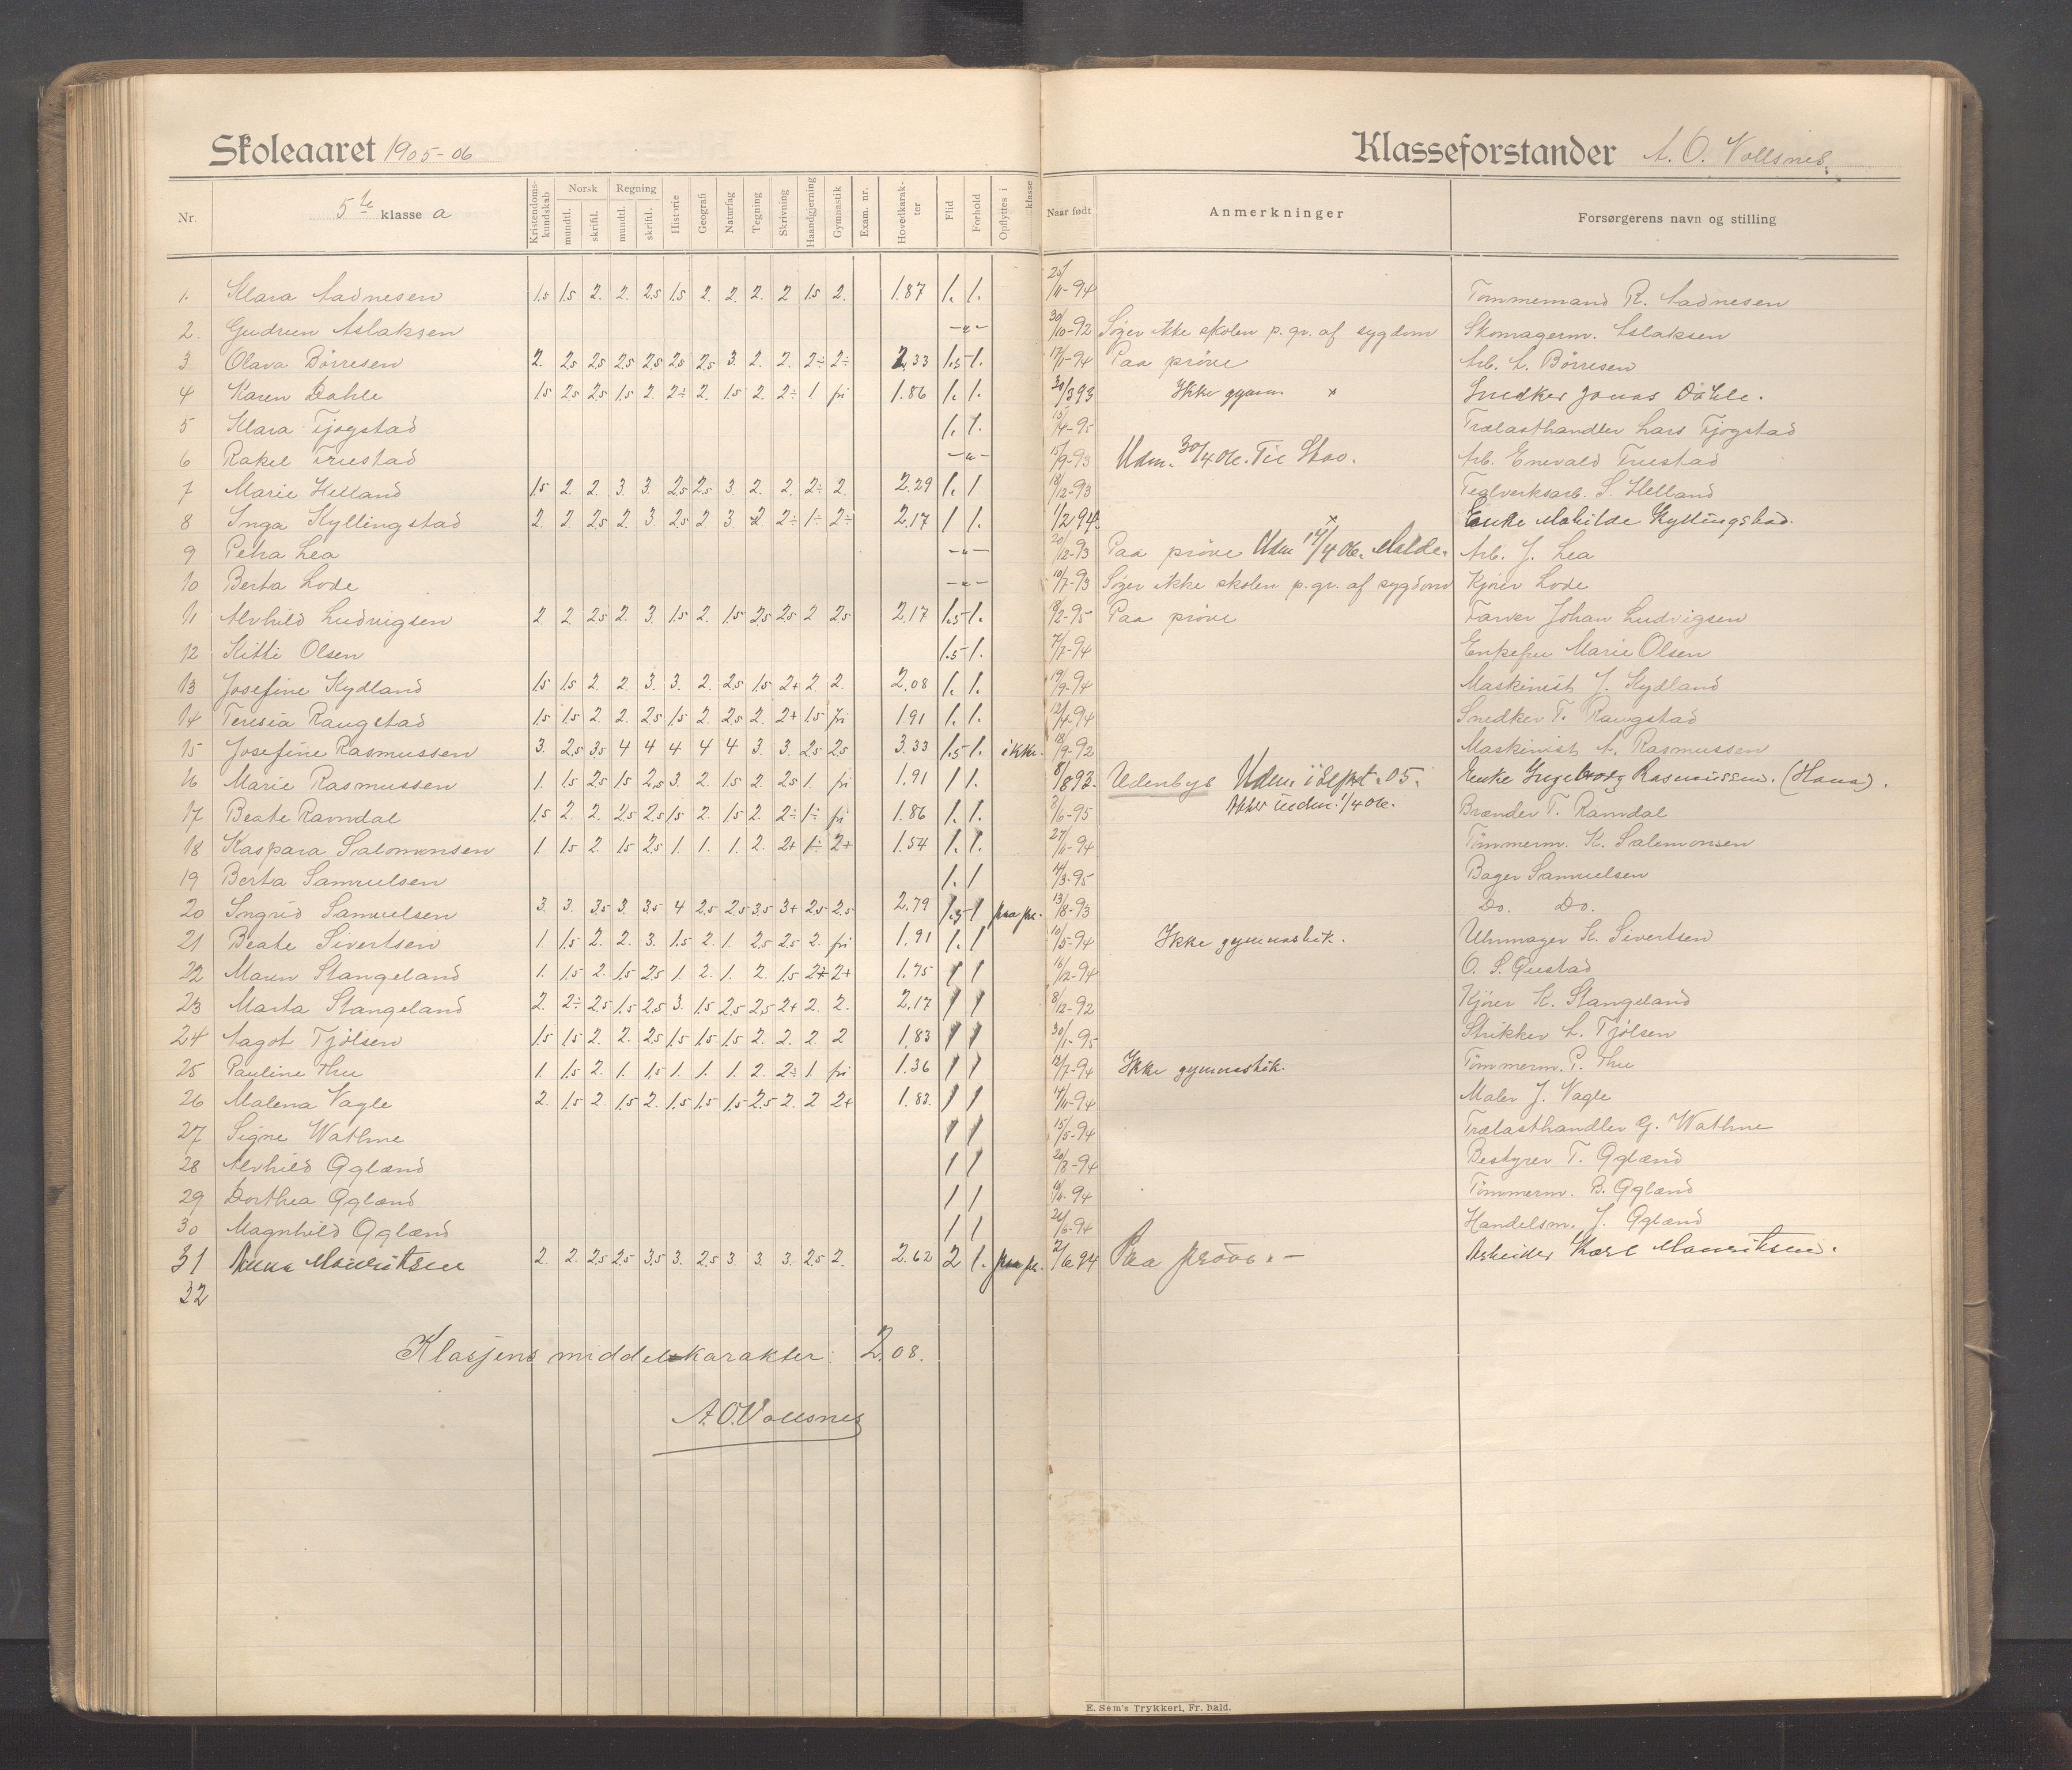 Skoleaaret 1905-06
Klasseforstander A. O. Vollsnes.
Nr. 5te klasse a Kristendoms-kundskab Norsk mundtl. skriftl. Regning mundtl. skriftl. Historie Geografi Naturfag Tegning Skrivning Haandgjerning Gymnastik Exam. nr. Hovedkarakter Flid Forhold Opflyttes i klasse Naar født Anmerkninger Forsørgerens navn og stilling
1. Klara Aadnesen 1.5 1.5 2. 2. 2.5 1.5 2. 2. 2. 2 1.5 2. 1.87 1. 1. 25/11-94 Tømmermand R. Aadnesen
2. Gudrun Aslaksen -"- 30/10-92 Søger ikke skolen p. gr. af sygdom Skomagerm. Aslaksen
3 Olava Børresen 2. 2.5 2.5 2.5 2.5 2.5 2.5 3. 2. 2. 2÷ 2÷ 2.33 1.5 1. 17/11-94 Paa prøve Arb. L. Børresen
4 Karen Dahle 1.5 2.5 2.5 1.5 2. 2÷ 2. 1.5 2. 2÷ 1 fri 1.86 1. 1. 30/3 93 Ikke gymn x Snedker Jonas Dahle.
5 Klara Tjøgstad 1. 1. 15/4-95 Trælasthandler Lars Tjøgstad
6 Rakel Friestad -"- 17/9-93 Udm. 30/4 06. Til Stav. Arb. Enevald Friestad
7 Marie Helland 1.5 2. 2. 3. 3. 2.5 2.5 3. 2. 2. 2÷ 2. 2.29 1. 1 18/12-93 Teglverksarb. S. Helland
8 Inga Kyllingstad 2. 2 2.5 2. 3. 2.5 2 3. 2. 2÷ 1÷ 2÷ 2.17 1 1. 1/2 94 x Enke Mahilde Kyllingstad.
9 Petra Lea -"- 20/12-93 Paa prøve Udm 17/4 06. Malde. Arb. J. Lea
10 Berta Lode -"- 10/7-93 Søger ikke skolen p. gr. af sygdom Kjører Lode
11 Alvhild Ludvigsen 2 2 2.5 2. 3. 1.5 2. 1.5 2.5 2.5 2 2.5 2.17 1.5 1. 9/2-95 Paa prøve Farver Johan Ludvigsen
12 Kitti Olsen 1.5 1. 7/7-94 Enkefru Marie Olsen
13 Josefine Rydland 1.5 1.5 2. 2. 3. 3. 2. 2.5 1.5 2+ 2. 2. 2.08 1. 1. 19/9-94 Maskinist J. Rydland
14 Teresia Raugstad 1.5 1.5 2. 2. 2.5 1.5 2. 2.5 2. 2+ 1.5 fri 1.91 1. 1. 12/4-94 Snedker T. Raugstad
15 Josefine Rasmussen 3. 2.5 3.5 4 4 4 4 4 3. 3. 2.5 2.5 3.33 1.5 1. ikke. 18/9-92 Maskinist A. Rasmussen
16 Marie Rasmussen 1. 1.5 2.5 1.5 2.5 3. 2. 1.5 2. 2.5 1. fri 1.91 1 1. 8/1 893. Udenbys Udm. i Sept. 05. Enke Ingeborg Rasmussen. (Hana).
17 Beate Ravndal 1.5 2. 2. 2.5 2.5 1.5 2. 1.5 2. 2÷ 1÷ fri 1.86 1. 1. 3/6-95 Atter indm. 1/4 06. Brænder T. Ravndal
18 Kaspara Salomonsen 1. 1.5 2. 1.5 2.5 1. 1. 1. 2. 2+ 1÷ 2+ 1.54 1. 1. 27/11-94 Tømmerm. K. Salomonsen
19 Berta Samuelsen 1. 1 4/3-95 Bager Samuelsen
20 Ingrid Samuelsen 3. 3. 3.5 3. 3.5 4 2.5 2.5 3.5 3+ 2.5 2.5 2.79 1.5 1 paa pr. 13/8-93 Do. Do.
21 Beate Sivertsen 1. 1.5 2. 2. 3. 1.5 2. 1. 2.5 2.5 2. fri 1.91 1. 1 10/5-94 Ikke gymnastik. Uhrmager K. Sivertsen
22 Maren Stangeland 1. 1.5 2. 1.5 2.5 1. 2. 1. 2. 1.5 2+ 2+ 1.75 1 1 16/12-94 O. S. Grestad
23 Marta Stangeland 2. 2÷ 2.5 1.5 2.5 3. 1.5 2.5 2.5 2+ 2. 2. 2.17 1 1 8/12-92 Kjører K. Stangeland
24 Aagot Tjølsen 1.5 1.5 2. 2. 2.5 1.5 1.5 1.5 2. 2. 2. 2 1.83 1 1 30/1-95 Strikker L. Tjølsen
25 Pauline Thu 1. 1.5 2. 1. 1.5 1. 1. 1. 2. 2÷ 1. fri 1.36 1 1 12/7-94 Ikke gymnastik. Tømmerm. P. Thu
26 Malena Vagle 2. 1.5 2. 1.5 2. 1.5 1.5 1.5 2.5 2. 2 2+ 1.83. 1 1 14/11-94 Maler J. Vagle
27 Signe Wathne 1 1 15/5-94 Trælasthandler G. Wathne
28 Alvhild Øglænd 1 1 20/8-94 Bestyrer T. Øglænd
29 Dorthea Øglænd 1 1 18/11-94 Tømmerm. B. Øglænd
30 Magnhild Øglænd 1 1 26/6-94 Handelsm. J. Øglænd
31 Anna Mauritsen 2. 2. 2.5 2.5 3.5 3. 2.5 3. 3. 3. 2.5 2. 2.62 2 1. paa pr. 2/6 94 Paa prøve.- Arbeider Karl Mauritsen.
32
Klassens middelskarakter: 2.08.
A.O.Vollsnes
E. Sem's Trykkeri, Fr. hald.